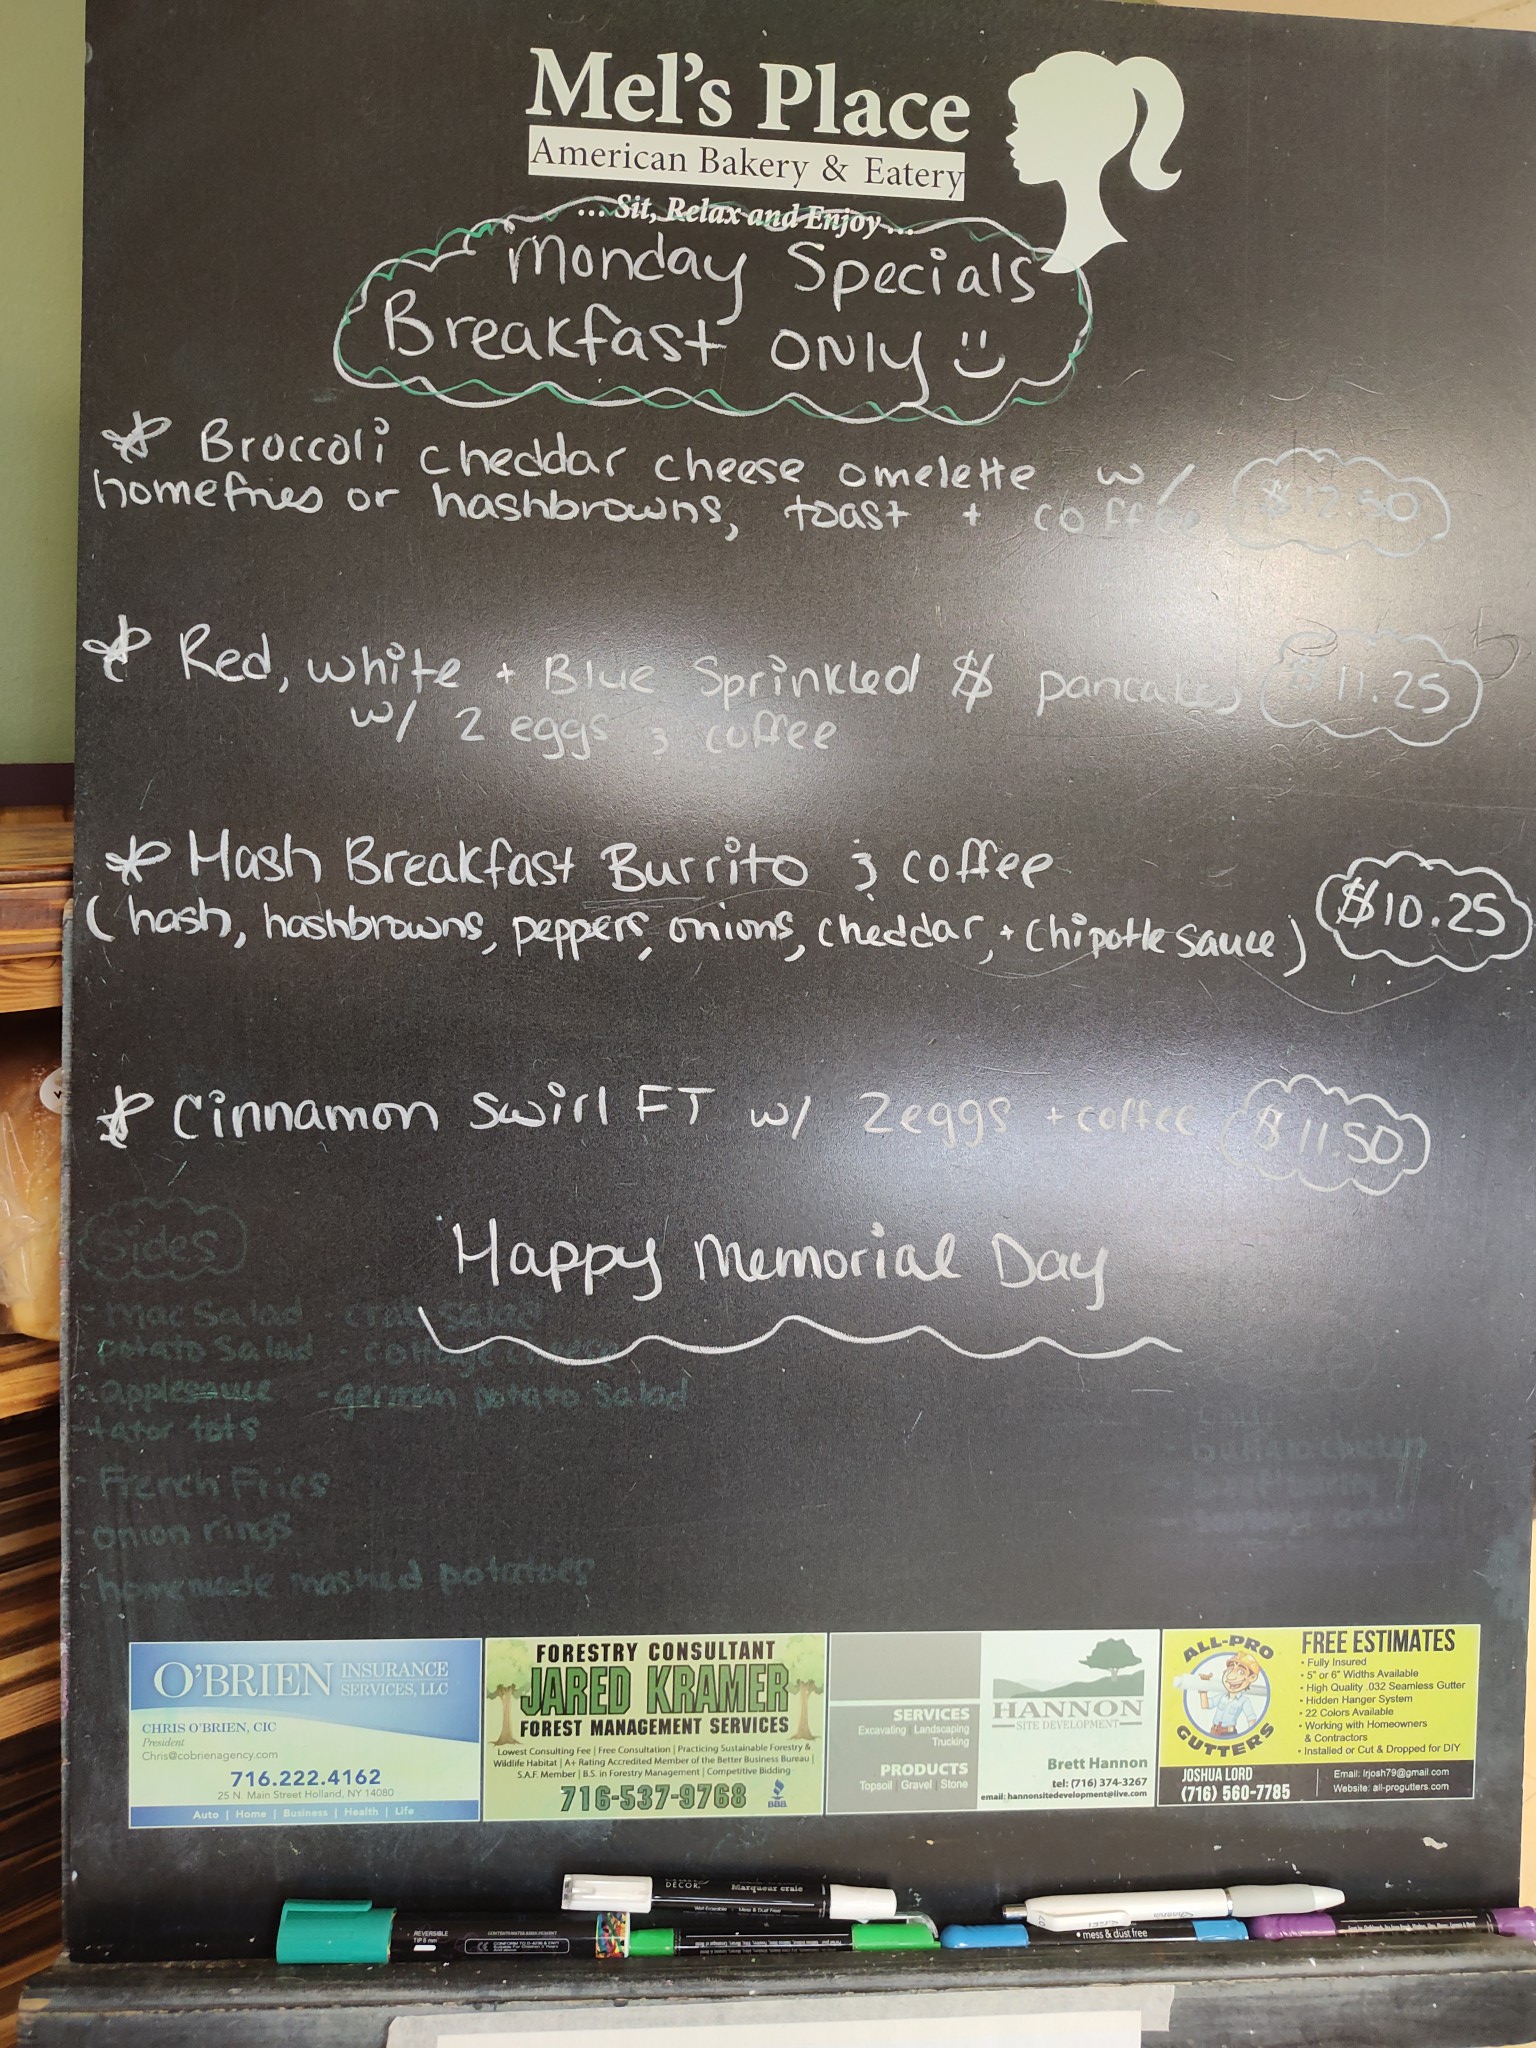 Mel's Place
American Bakery & Eatery
... Sit, Relax and Enjoy ...
Monday Specials
Breakfast ONLY
* Broccoli cheddar cheese omelette w/
homefries or hashbrowns, toast + coffee $12.50
* Red, white + Blue Sprinkled $ pancakes $11.25
w/ 2 eggs & coffee
* Hash Breakfast Burrito & coffee
(hash, hashbrowns, peppers, onions, cheddar, + Chipotle sauce) $10.25
* Cinnamon swirl FT w/ 2 eggs + coffee $11.50
Happy Memorial Day
Sides
- Mac Salad - crab salad
- potato Salad - cottage cheese
- applesauce - german potato salad
- tator tots
- French Fries
- onion rings
- homemade mashed potatoes
O'BRIEN INSURANCE SERVICES, LLC
CHRIS O'BRIEN, CIC
President
Chris@cobrienagency.com
716.222.4162
25 N. Main Street Holland, NY 14080
Auto | Home | Business | Health | Life
FORESTRY CONSULTANT
JARED KRAMER
FOREST MANAGEMENT SERVICES
Lowest Consulting Fee | Free Consultation | Practicing Sustainable Forestry &
Wildlife Habitat | A+ Rating Accredited Member of the Better Business Bureau |
S.A.F. Member | B.S. in Forestry Management | Competitive Bidding
716-537-9768
BBB
SERVICES
Excavating Landscaping
Trucking
PRODUCTS
Topsoil Gravel Stone
HANNON
SITE DEVELOPMENT
Brett Hannon
tel: (716) 374-3267
email: hannonsitedevelopment@live.com
ALL-PRO
GUTTERS
JOSHUA LORD
(716) 560-7785
FREE ESTIMATES
• Fully Insured
• 5" or 6" Widths Available
• High Quality .032 Seamless Gutter
• Hidden Hanger System
• 22 Colors Available
• Working with Homeowners
& Contractors
• Installed or Cut & Dropped for DIY
Email: lrjosh79@gmail.com
Website: all-progutters.com
DECOR
Marqueur craie
Wet-Erasable • Mess & Dust Free
REVERSIBLE
TIP 8 mm
• mess & dust free